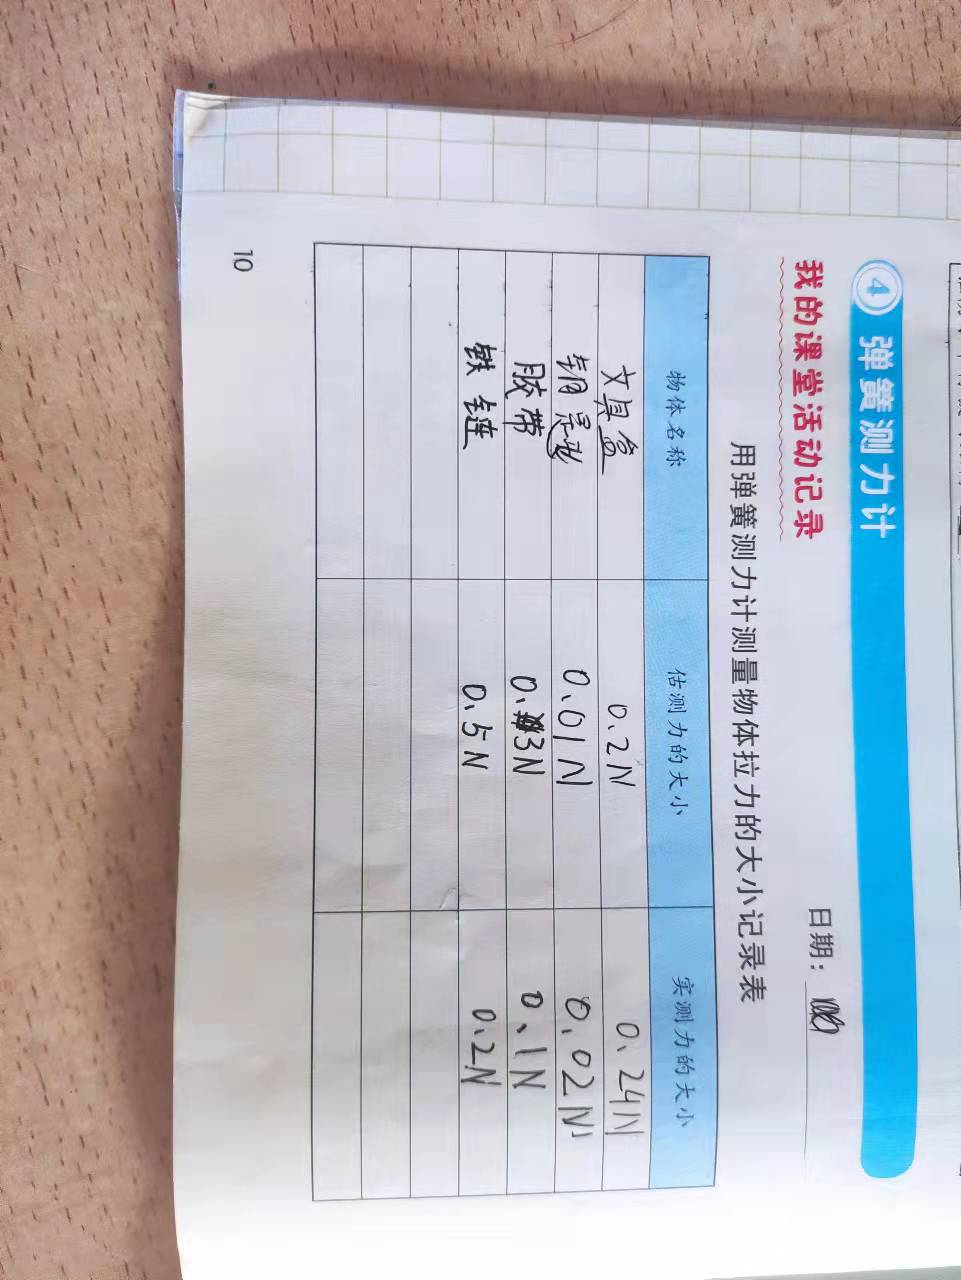 ④ 弹簧测力计
我的课堂活动记录
日期：
用弹簧测力计测量物体拉力的大小记录表
物体名称 估测力的大小 实测力的大小
文具盒 0.2N 0.24N
0.01N 0.02N
胶带 0.3N 0.1N
铁链 0.5N 0.2N
10